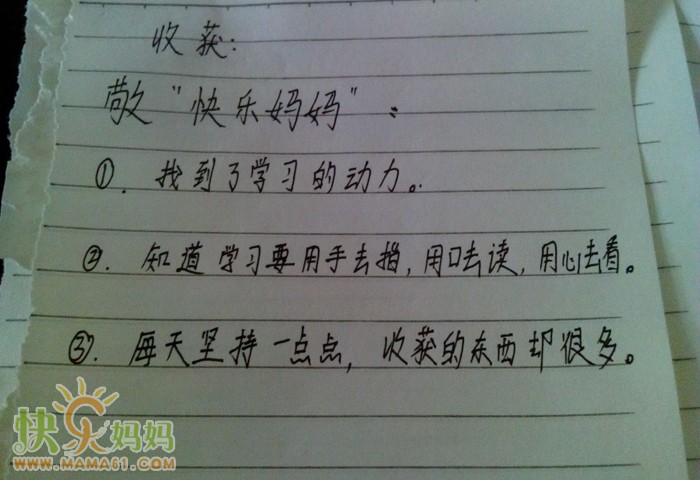 收获:
敬"快乐妈妈":
①. 找到了学习的动力。
②. 知道学习要用手去指,用口去读,用心去看。
③. 每天坚持一点点,收获的东西却很多。
快乐妈妈
WWW.MAMA61.COM